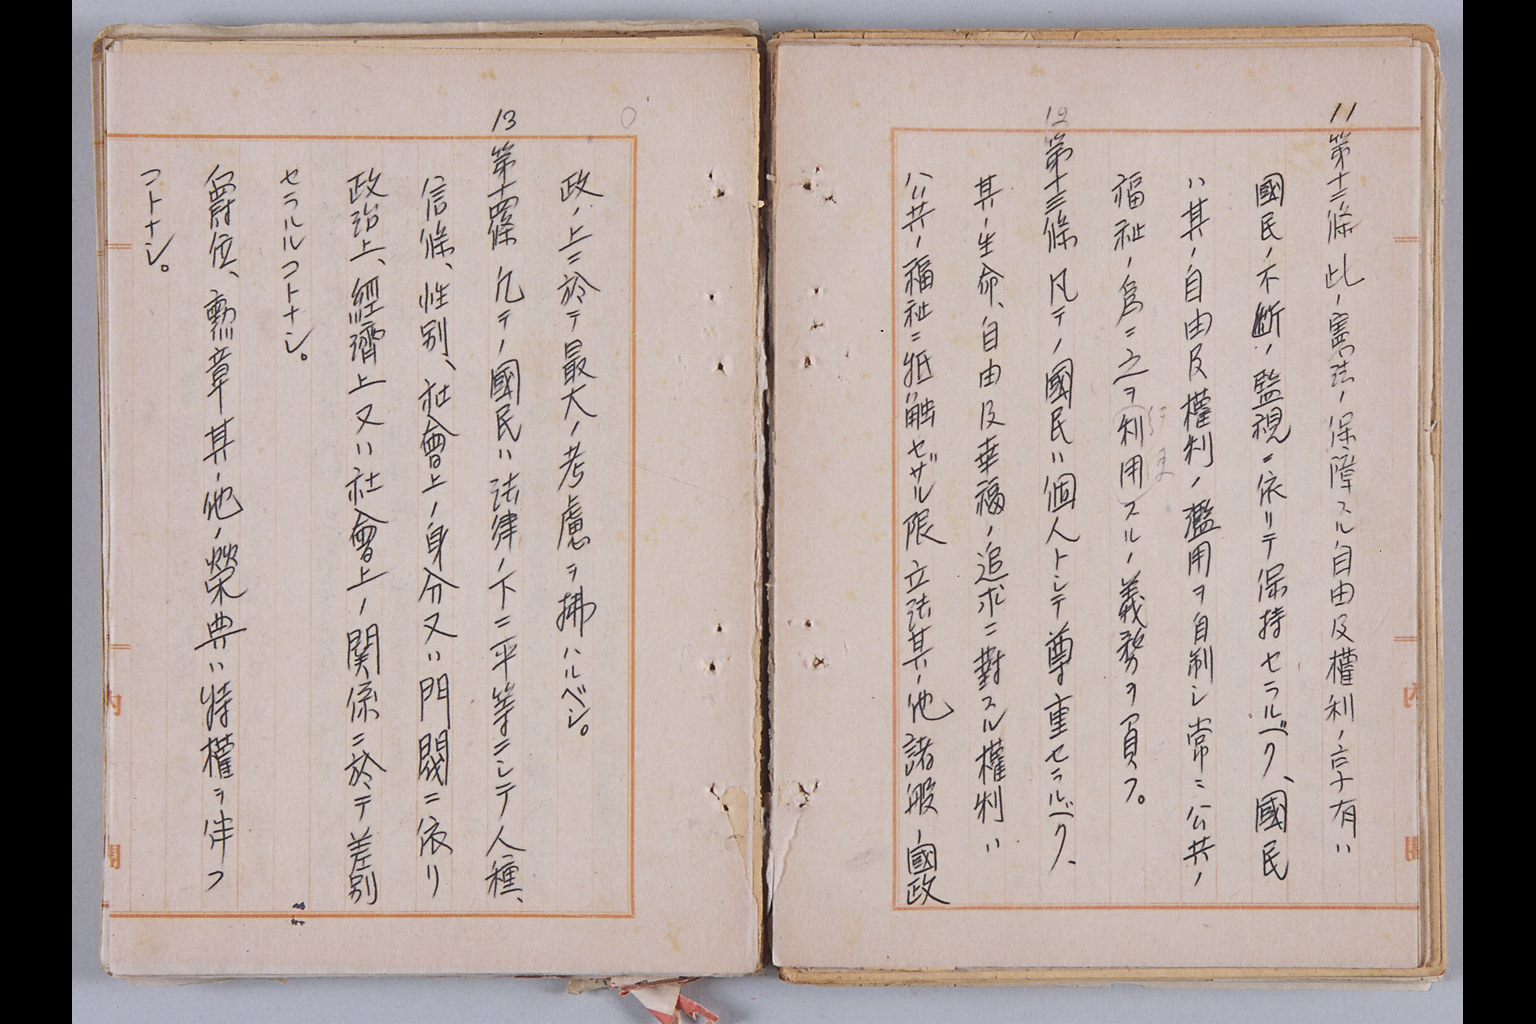 11 第十二條 此ノ憲法ノ保障スル自由及權利ノ享有ハ
國民ノ不断ノ監視ニ依リテ保持セラルベク、國民
ハ其ノ自由及權利ノ濫用ヲ自制シ常ニ公共ノ
福祉ノ為ニ之ヲ利用スルノ義務ヲ負フ。
12 第十三條 凡テノ國民ハ個人トシテ尊重セラルベク、
其ノ生命、自由及幸福ノ追求ニ對スル權利ハ
公共ノ福祉ニ抵触セザル限立法其ノ他諸般ノ國政
政ノ上ニ於テ最大ノ考慮ヲ拂ハルベシ。
13 第十四條 凡テノ國民ハ法律ノ下ニ平等ニシテ人種、
信條、性別、社會上ノ身分又ハ門閥ニ依リ
政治上、經濟上又ハ社會上ノ関係ニ於テ差別
セラルルコトナシ。
爵位、勲章其ノ他ノ榮典ハ特權ヲ伴フ
コトナシ。
内
閣